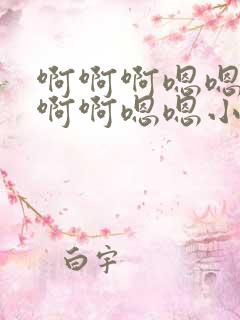 啊啊啊嗯嗯
啊啊嗯嗯小
白宇